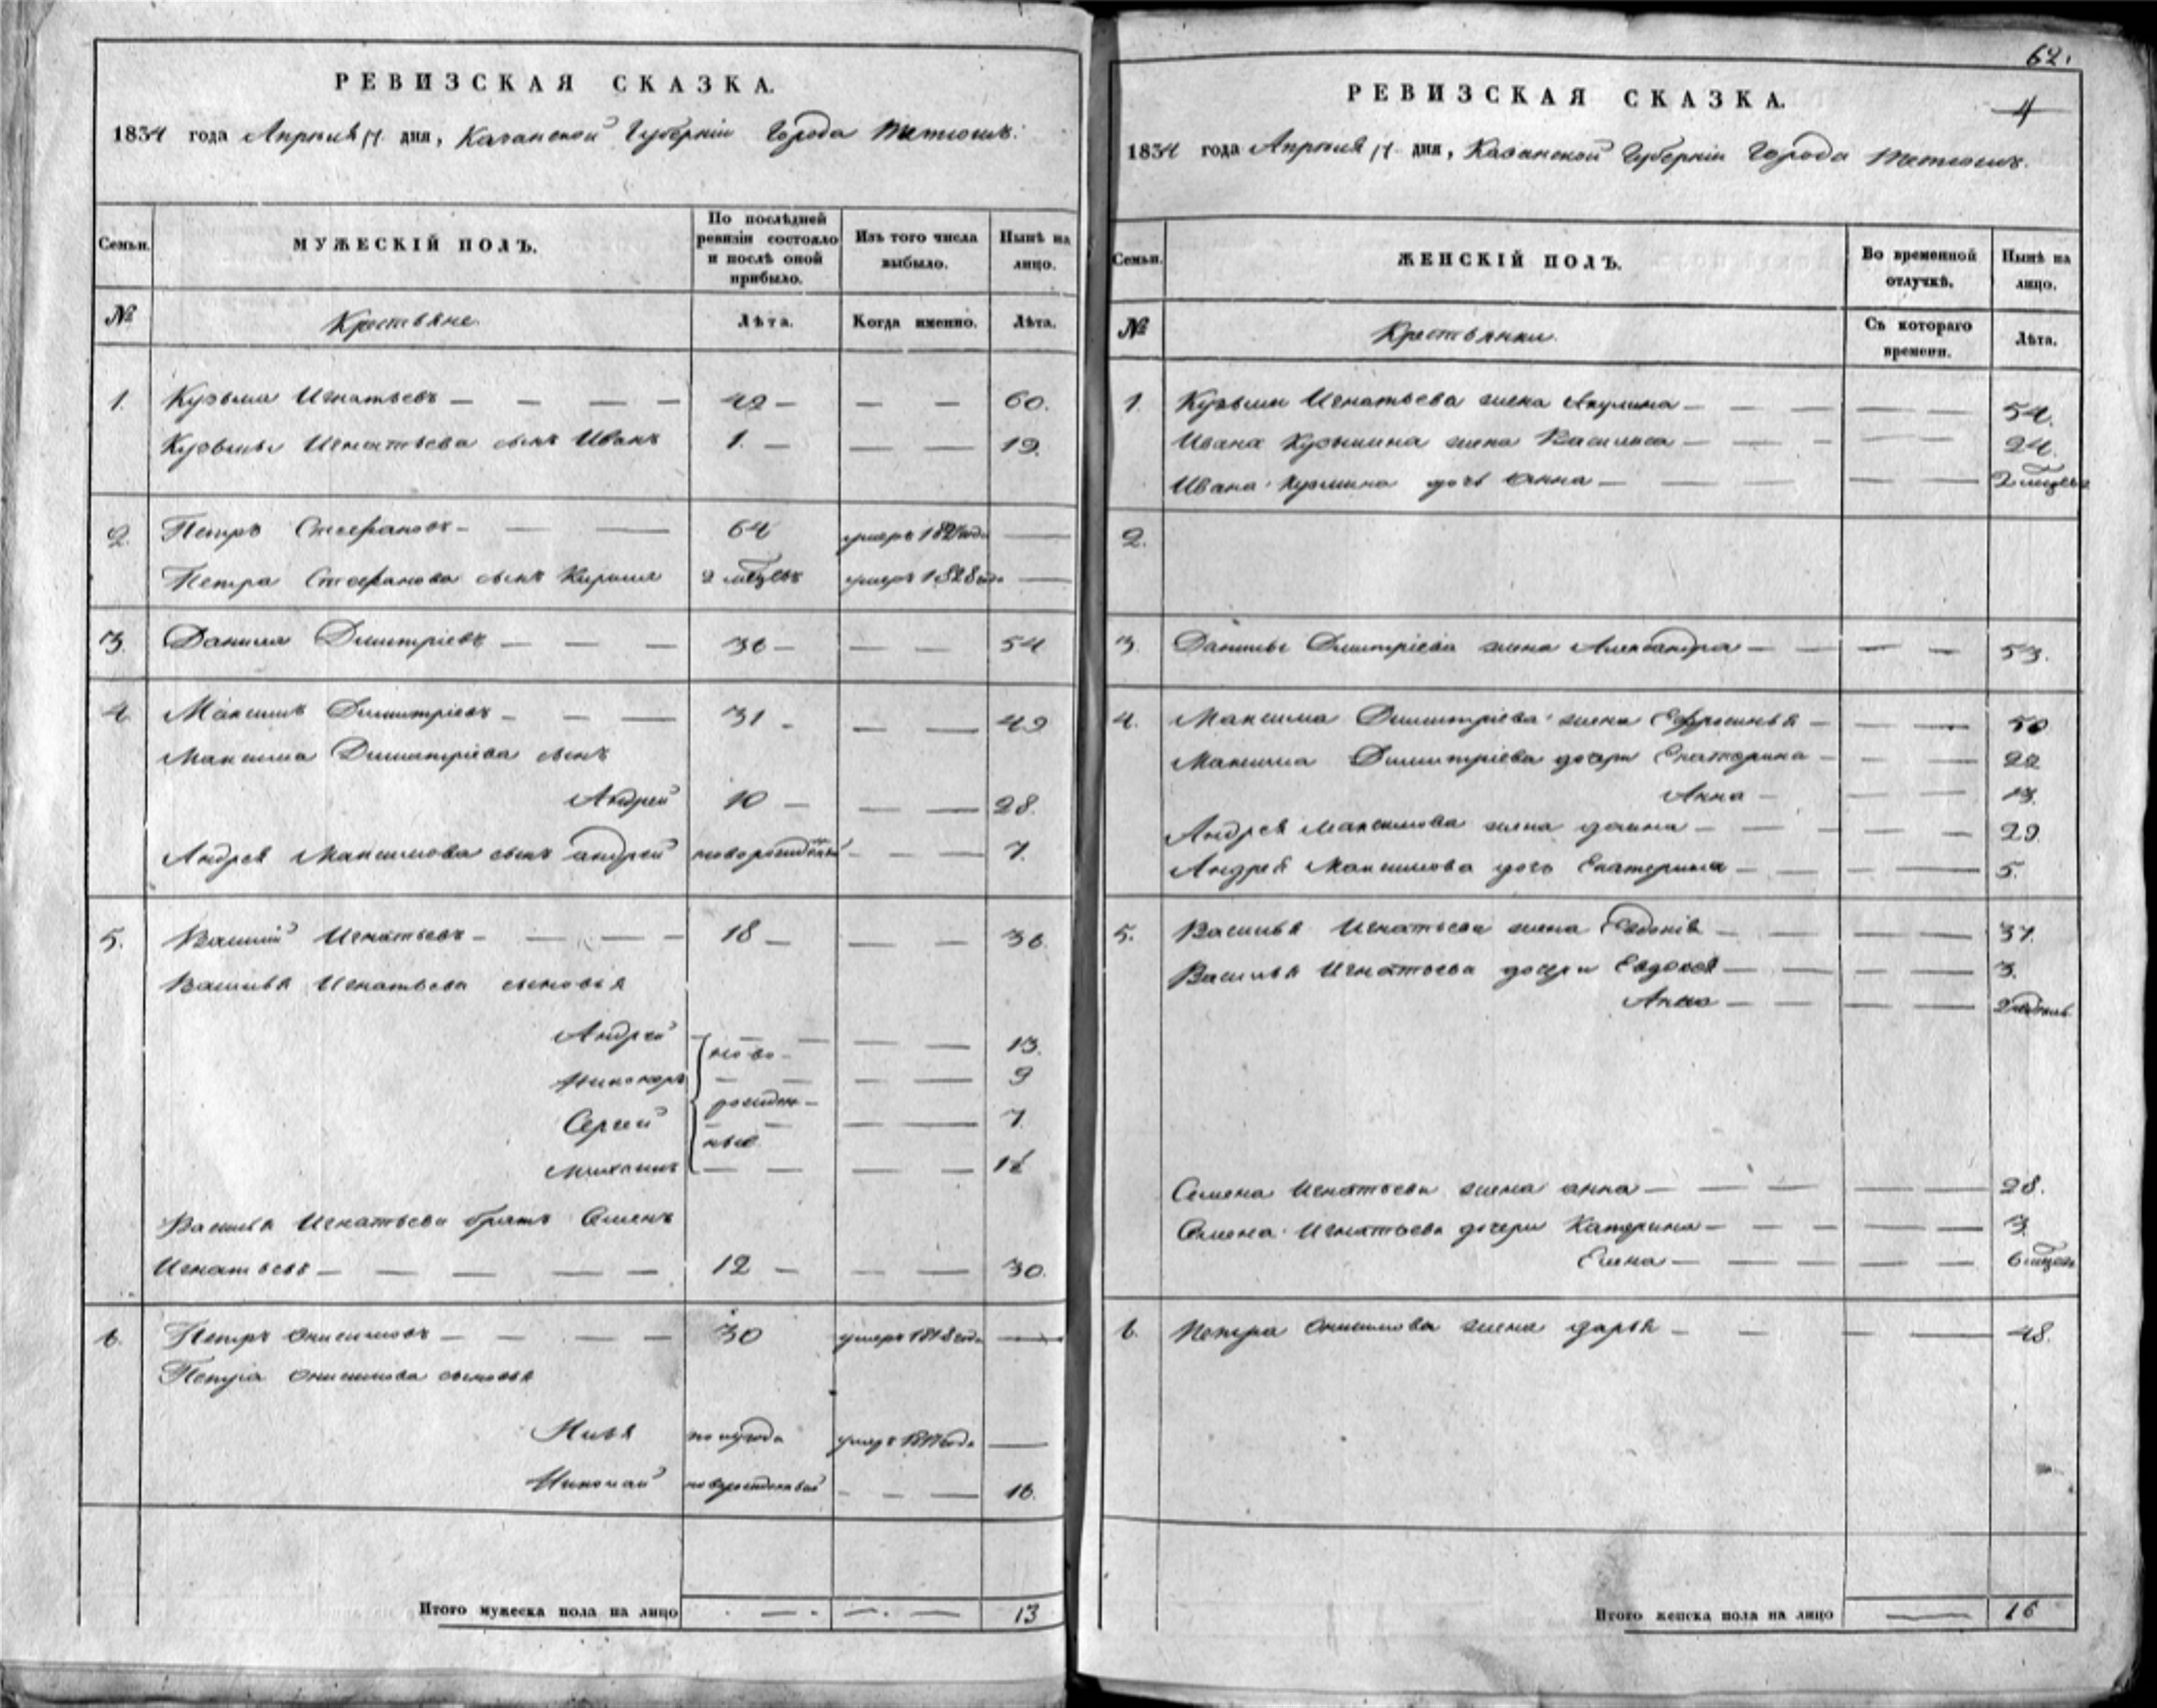 РЕВИЗСКАЯ СКАЗКА.
1834 года Апреля 17 дня, Казанской Губерніи Города Тетюшъ.
Семьи.
МУЖЕСКІЙ ПОЛЪ.
По послѣдней ревизіи состояло и послѣ оной прибыло.
Изъ того числа выбыло.
Нынѣ на лицо.
№
Крестьяне.
Лѣта.
Когда именно.
Лѣта.
1. Кузьма Игнатьевъ — — — — 42 — — — 60.
Кузьмы Игнатьева сынъ Иванъ 1. — — — 19.
2. Петръ Стефановъ — — — 64 умеръ —
Петра Стефанова сынъ Кирила 2 мѣсецъ умеръ 1828 года —
3. Данила Димитріевъ — — — 36 — — — 54
4. Максимъ Димитріевъ — — — 31 — — — 49
Максима Димитріева сынъ
Андрей 10 — — — 28.
Андрея Максимова сынъ андрей новорожденный — — — 7.
5. Василій Игнатьевъ — — — — 18 — — — 36
Василья Игнатьева сыновья
Андрей — — — — — 13.
ново-
Никоноръ — — — — 9
рожден-
Сергей — — — — 7.
ные
Михаилъ — — — —
Василья Игнатьева братъ Семенъ
Игнатьевъ — — — — — 12 — — — 30.
6. Петръ Онисимовъ — — — — 30 умеръ 1818 года —
Петра Онисимова сыновья
Илья полугода умеръ —
Николай новорожденный — — — 16.
Итого мужеска пола на лицо — — 13
62.
4
РЕВИЗСКАЯ СКАЗКА.
1834 года Апреля 17 дня, Казанской Губерніи Города Тетюшъ.
Семьи.
ЖЕНСКІЙ ПОЛЪ.
Во временной отлучкѣ.
Нынѣ на лицо.
№
Крестьянки.
Съ котораго времени.
Лѣта.
1. Кузьмы Игнатьева жена Акулина — — — — — 54.
Ивана Кузьмина жена Василиса — — — — — 24.
Ивана Кузмина дочь Анна — — — — — 2 мѣсецъ
2.
3. Данилы Димитріева жена Александра — — — — 53.
4. Максима Димитріева жена Ефросинья — — — 50
Максима Димитріева дочери Екатерина — — — 22
Анна — — — 13.
Андрея Максимова жена — — — — — 29.
Андрея Максимова дочь Екатерина — — — — — 5.
5. Василья Игнатьева жена — — — — 37.
Василья Игнатьева дочери Евдокея — — — — — 3.
Анна — — — — —
Семена Игнатьева жена анна — — — — — 28.
Семена Игнатьева дочери Катерина — — — — — 3.
Елена — — — — — — 6 мѣсецъ
6. Петра Онисимова жена дарья — — — — 48.
Итого женска пола на лицо — 16